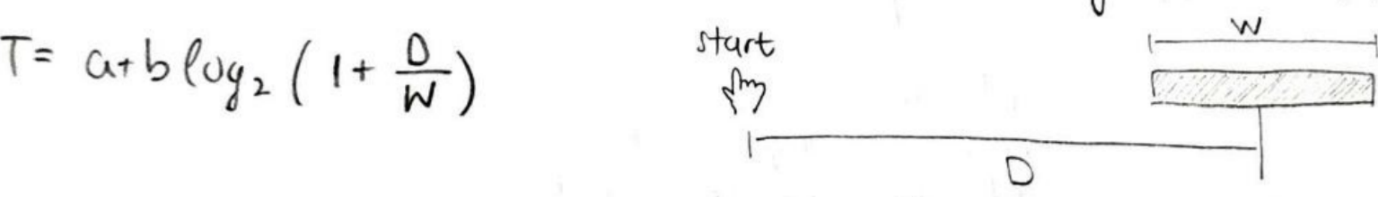 T= a+b log₂ (1+ D/W)
start
W
D